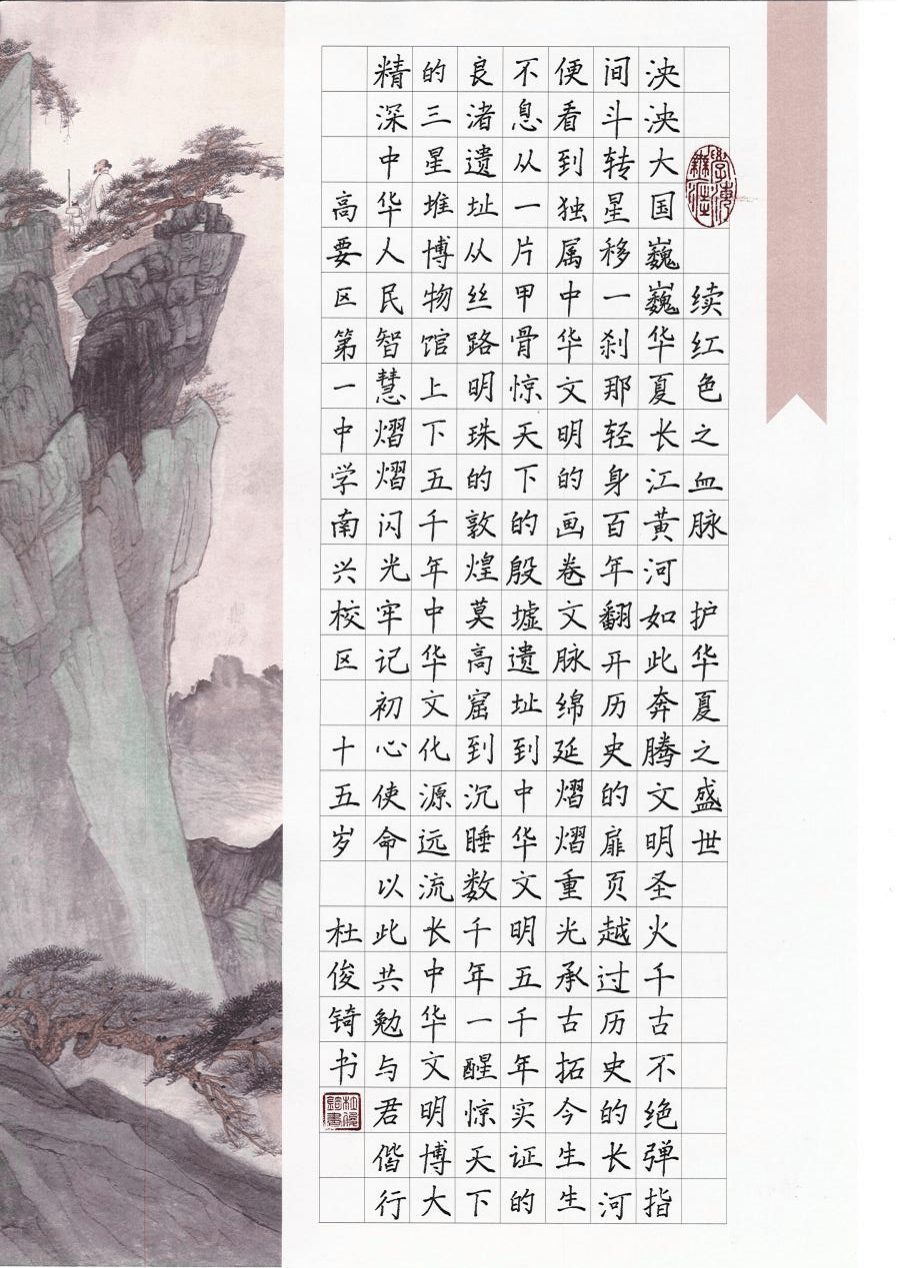 续红色之血脉 护华夏之盛世
泱泱大国巍巍华夏长江黄河如此奔腾文明圣火千古不绝弹指
间斗转星移一刹那轻身百年翻开历史的扉页越过历史的长河
便看到独属中华文明的画卷文脉绵延熠熠重光承古拓今生生
不息从一片甲骨惊天下的殷墟遗址到中华文明五千年实证的
良渚遗址从丝路明珠的敦煌莫高窟到沉睡数千年一醒惊天下
的三星堆博物馆上下五千年中华文化源远流长中华文明博大
精深中华人民智慧熠熠闪光牢记初心使命以此共勉与君偕行
高要区第一中学南兴校区 十五岁 杜俊锜书
杜俊錡書